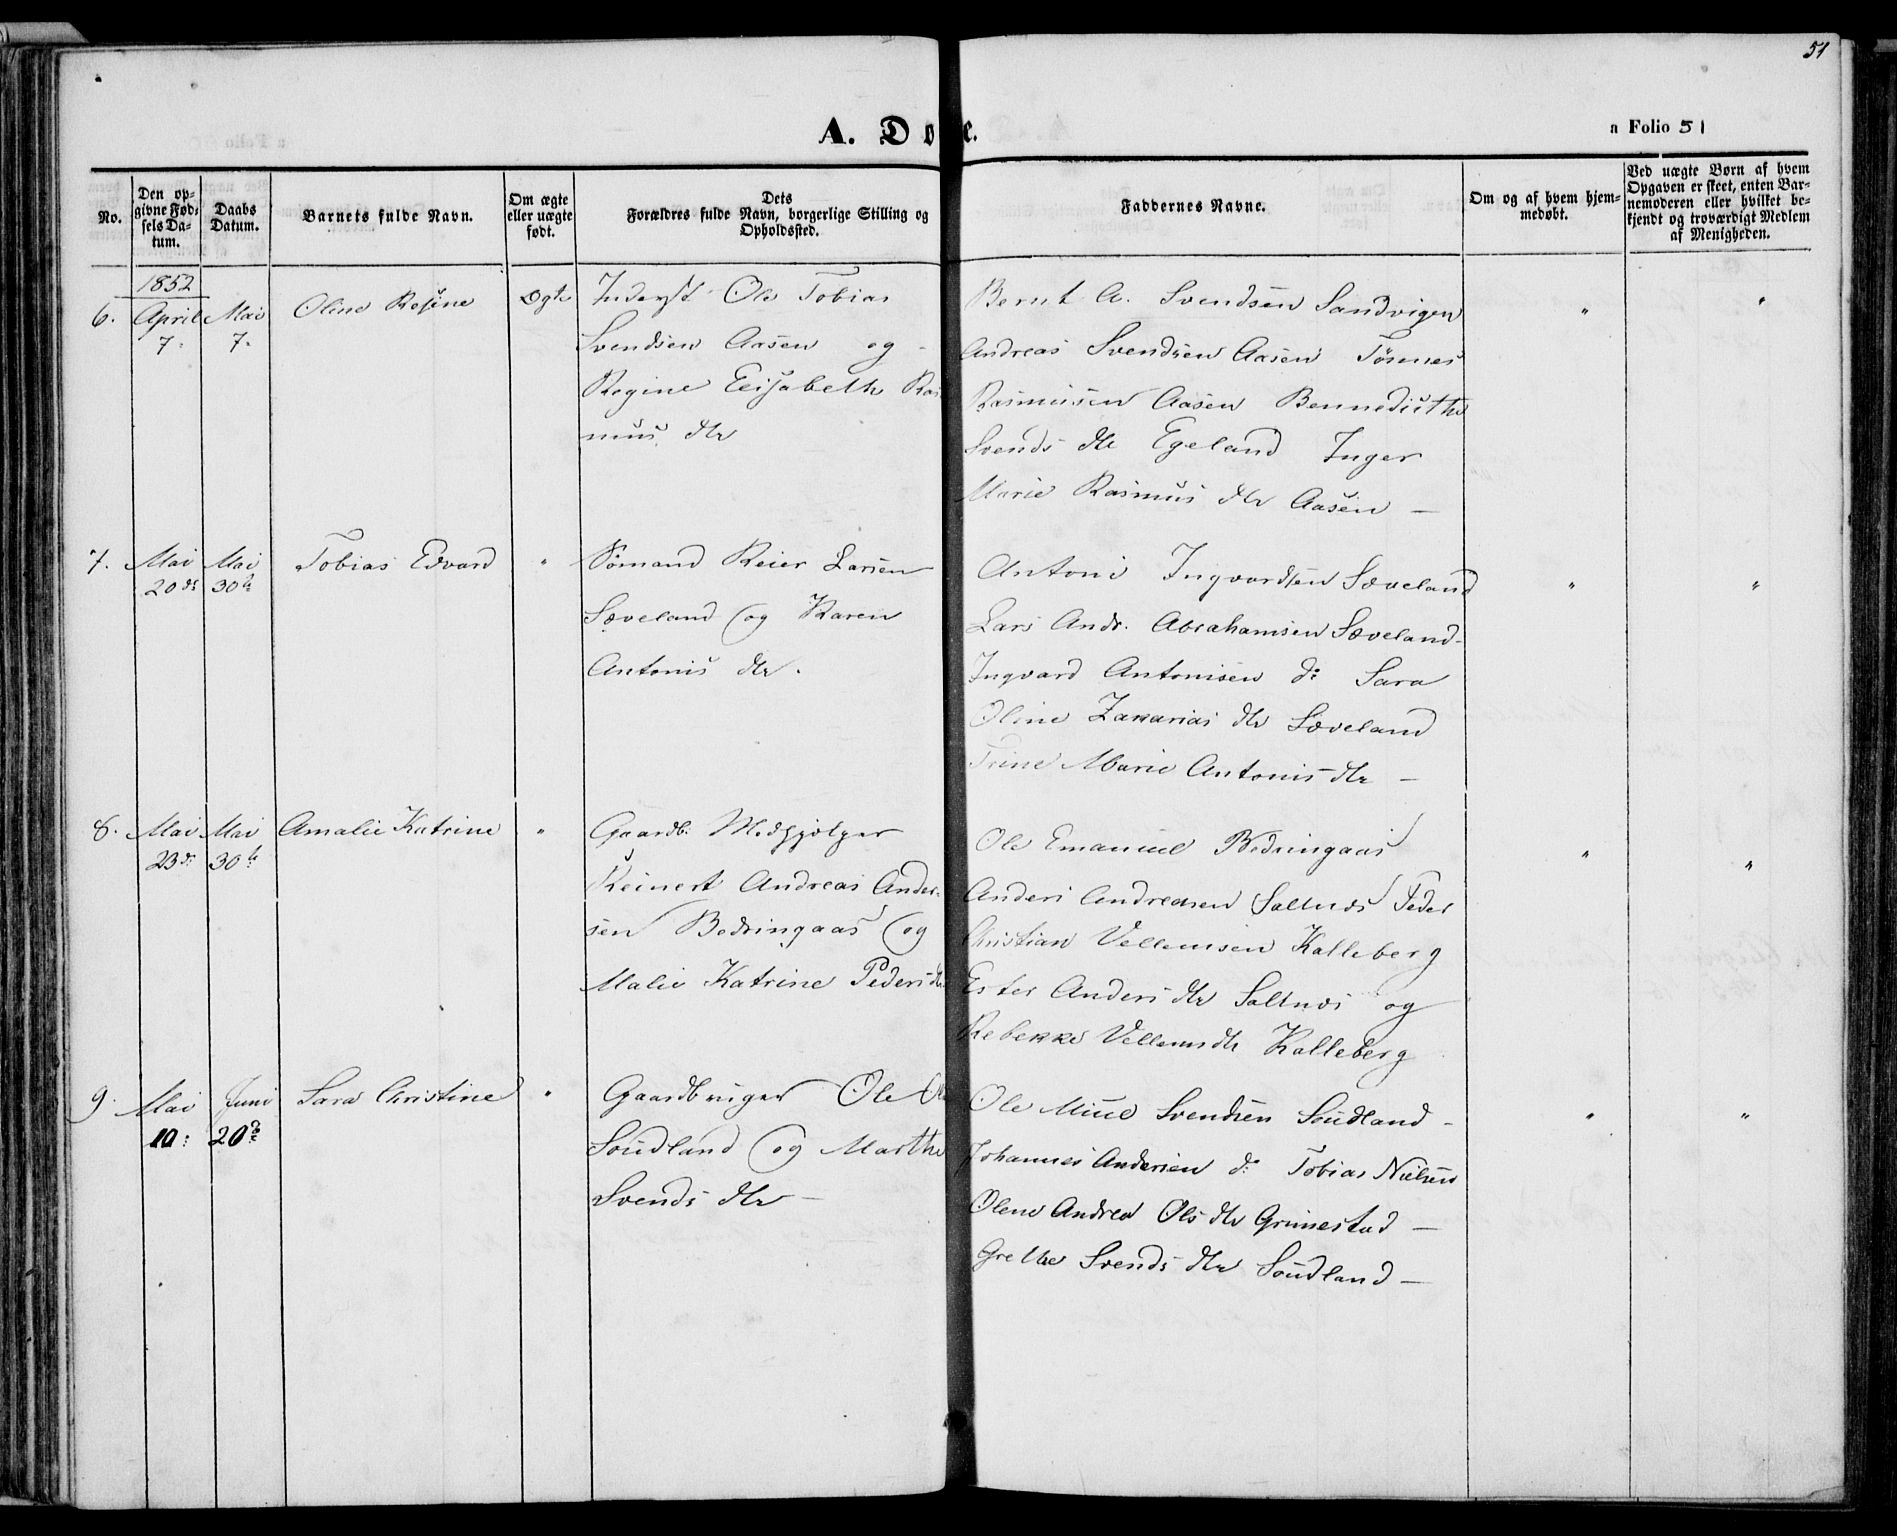 51
A. Døbte.
a Folio 51
No.
Den opgivne Fødsels Datum.
Daabs Datum.
Barnets fulde Navn.
Om ægte eller uægte født.
Dets Forældres fulde Navn, borgerlige Stilling og Opholdssted.
Faddernes Navne.
Om og af hvem hjemmedøbt.
Ved uægte Børn af hvem Opgaven er skeet, enten Barnemoderen eller hvilket bekjendt og troværdigt Medlem af Menigheden.
1852
6. April 7. Mai 7. Oline Rosine Ægte
Inderst Ole Tobias
Svendsen Aasen og -
Regine Elisabeth Ras
mus dtr
Bernt A. Svendsen Sandvigen
Andreas Svendsen Aasen Tønnes
Rasmusen Aasen Bennedicthe
Svends dtr Egeland Inger
Marie Rasmus dtr Aasen —
" "
7. Mai 20de Mai 30te Tobias Edvard "
Sømand Reier Larsen
Sæveland og Karen
Antonis dtr.
Antoni Ingvardsen Sæveland
Lars Andr. Abrahamsen Sæveland-
Ingvard Antonisen do Sara
Oline Zakarias dtr Sæveland
Trine Marie Antonis dtr —
" "
8. Mai 23de Mai 30te Amalie Katrine "
Gaardb: Medhjælper
Reinert Andreas Ander-
sen Bedringaas og
Malie Katrine Peders dtr
Ole Emanuel Bedringaas
Anders Andreasen Saltnæs Peder
Christian Vellumsen Kalleberg
Ester Anders dtr Saltnæs og
Rebekke Vellums dtr Kalleberg
" "
9. Mai 10: Juni 20de Sara Christine "
Gaardbruger Ole
Soudland og Marthe
Svends dtr —
Ole Svendsen Soudland -
Johannes Andersen do Tobias Nielsen
Olene Andrea Ols dtr Grimestad —
Grethe Svends dtr Soudland —
" "